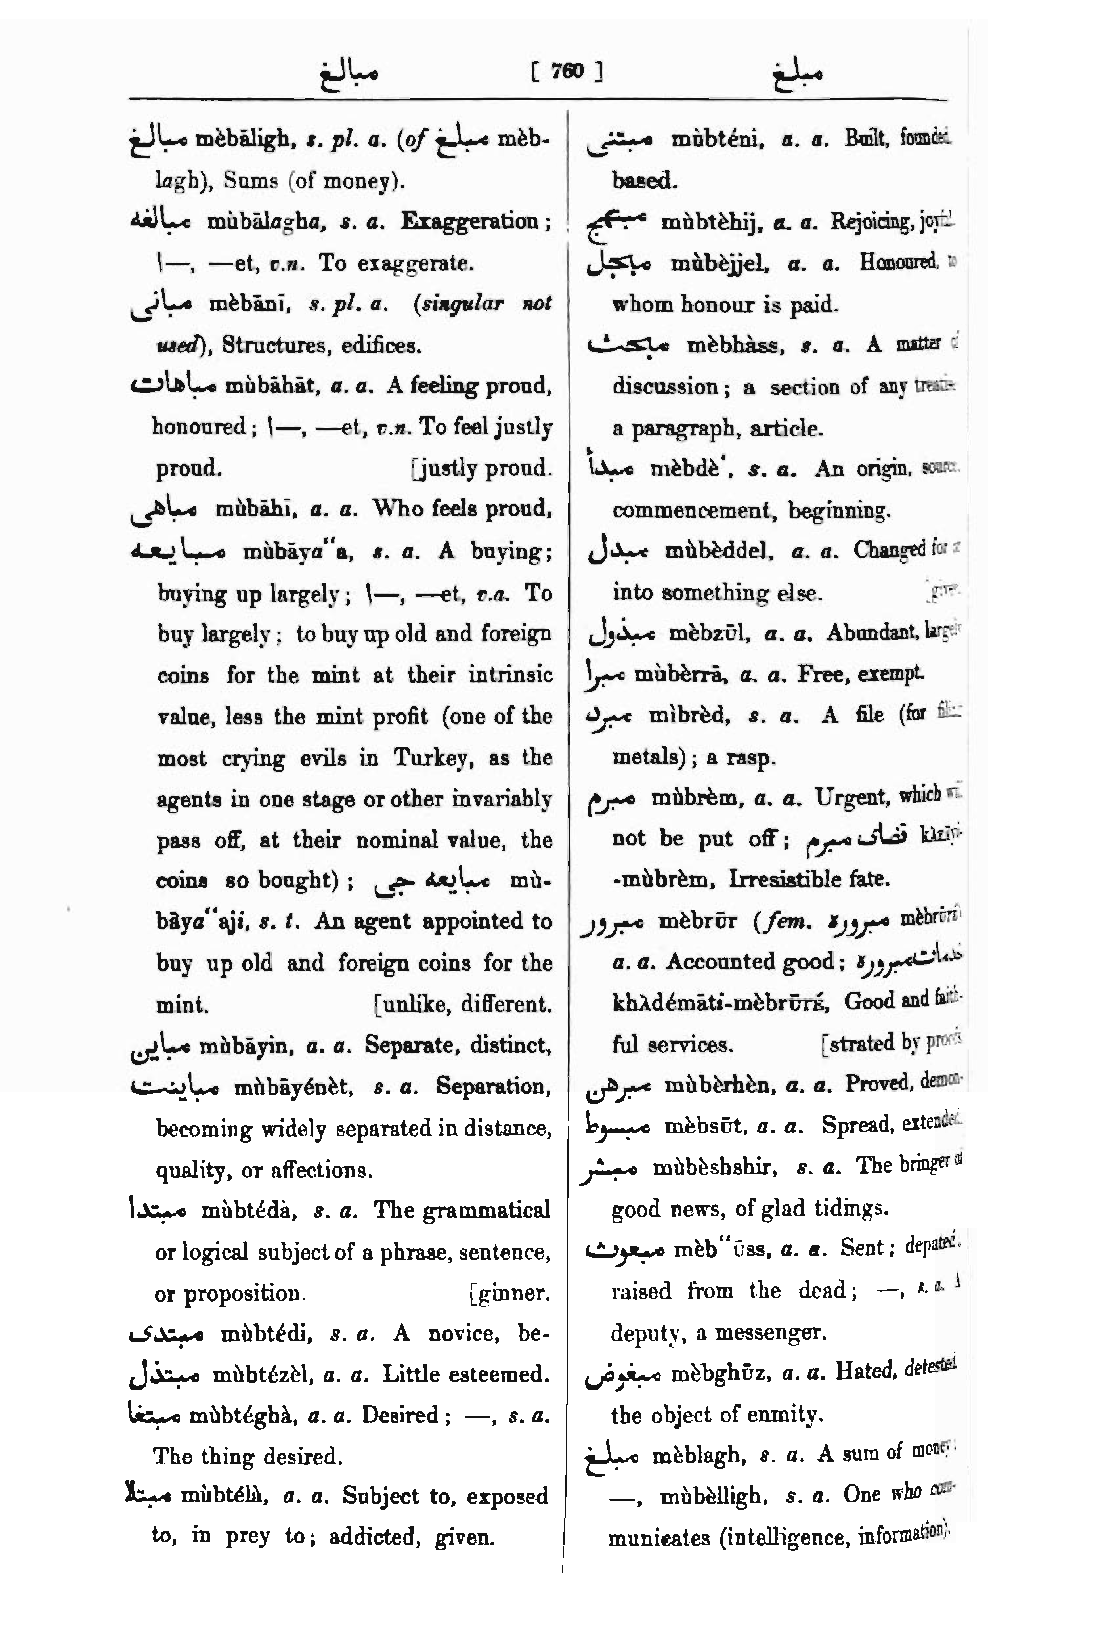 مبالغ [ 760 ] مبلغ
مبالغ mèbāligh, s. pl. a. (of مبلغ mèb-
lagh), Sums (of money).
مبالغه mùbālagha, s. a. Exaggeration;
\—, —et, v.n. To exaggerate.
مبانی mèbānī, s. pl. a. (singular not
used), Structures, edifices.
مباهات mùbāhāt, a. a. A feeling proud,
honoured; \—, —et, v.n. To feel justly
proud. [justly proud.
مباهی mùbāhī, a. a. Who feels proud,
مبایعه mùbāya‘‘a, s. a. A buying;
buying up largely; \—, —et, v.a. To
buy largely; to buy up old and foreign
coins for the mint at their intrinsic
value, less the mint profit (one of the
most crying evils in Turkey, as the
agents in one stage or other invariably
pass off, at their nominal value, the
coins so bought); مبایعه جی mù-
bāya‘‘aji, s. t. An agent appointed to
buy up old and foreign coins for the
mint. [unlike, different.
مباین mùbāyin, a. a. Separate, distinct,
مباینت mùbāyénèt, s. a. Separation,
becoming widely separated in distance,
quality, or affections.
مبتدا mùbtédà, s. a. The grammatical
or logical subject of a phrase, sentence,
or proposition. [ginner.
مبتدی mùbtédi, s. a. A novice, be-
مبتذل mùbtézèl, a. a. Little esteemed.
مبتغا mùbtéghà, a. a. Desired; —, s. a.
The thing desired.
مبتلا mùbtélà, a. a. Subject to, exposed
to, in prey to; addicted, given.
مبتنی mùbténi, a. a. Built, founded,
based.
مبتهج mùbtèhij, a. a. Rejoicing, joyful.
مبجل mùbèjjel, a. a. Honoured, to
whom honour is paid.
مبحث mèbhàss, s. a. A matter of
discussion; a section of any treatise,
a paragraph, article.
مبدأ mèbdè’, s. a. An origin, source,
commencement, beginning.
مبدل mùbèddel, a. a. Changed for or
into something else. [given.
مبذول mèbzūl, a. a. Abundant, largely
مبرا mùbèrrā, a. a. Free, exempt.
مبرد mìbrèd, s. a. A file (for filing
metals); a rasp.
مبرم mùbrèm, a. a. Urgent, which will
not be put off; قضای مبرم
-mùbrèm, Irresistible fate.
مبرور mèbrūr (fem. مبروره mèbrūré)
a. a. Accounted good; خدمات مبروره
khλdémāti-mèbrūré, Good and faith-
ful services. [strated by proofs.
مبرهن mùbèrhèn, a. a. Proved, demon-
مبسوط mèbsūt, a. a. Spread, extended.
مبشر mùbèshshir, s. a. The bringer of
good news, of glad tidings.
مبعوث mèb‘‘ūss, a. a. Sent; deputed;
raised from the dead; —, s. a. A
deputy, a messenger.
مبغوض mèbghūz, a. a. Hated, detested,
the object of enmity.
مبلغ mèblagh, s. a. A sum of money;
—, mùbèlligh, s. a. One who com-
municates (intelligence, information).